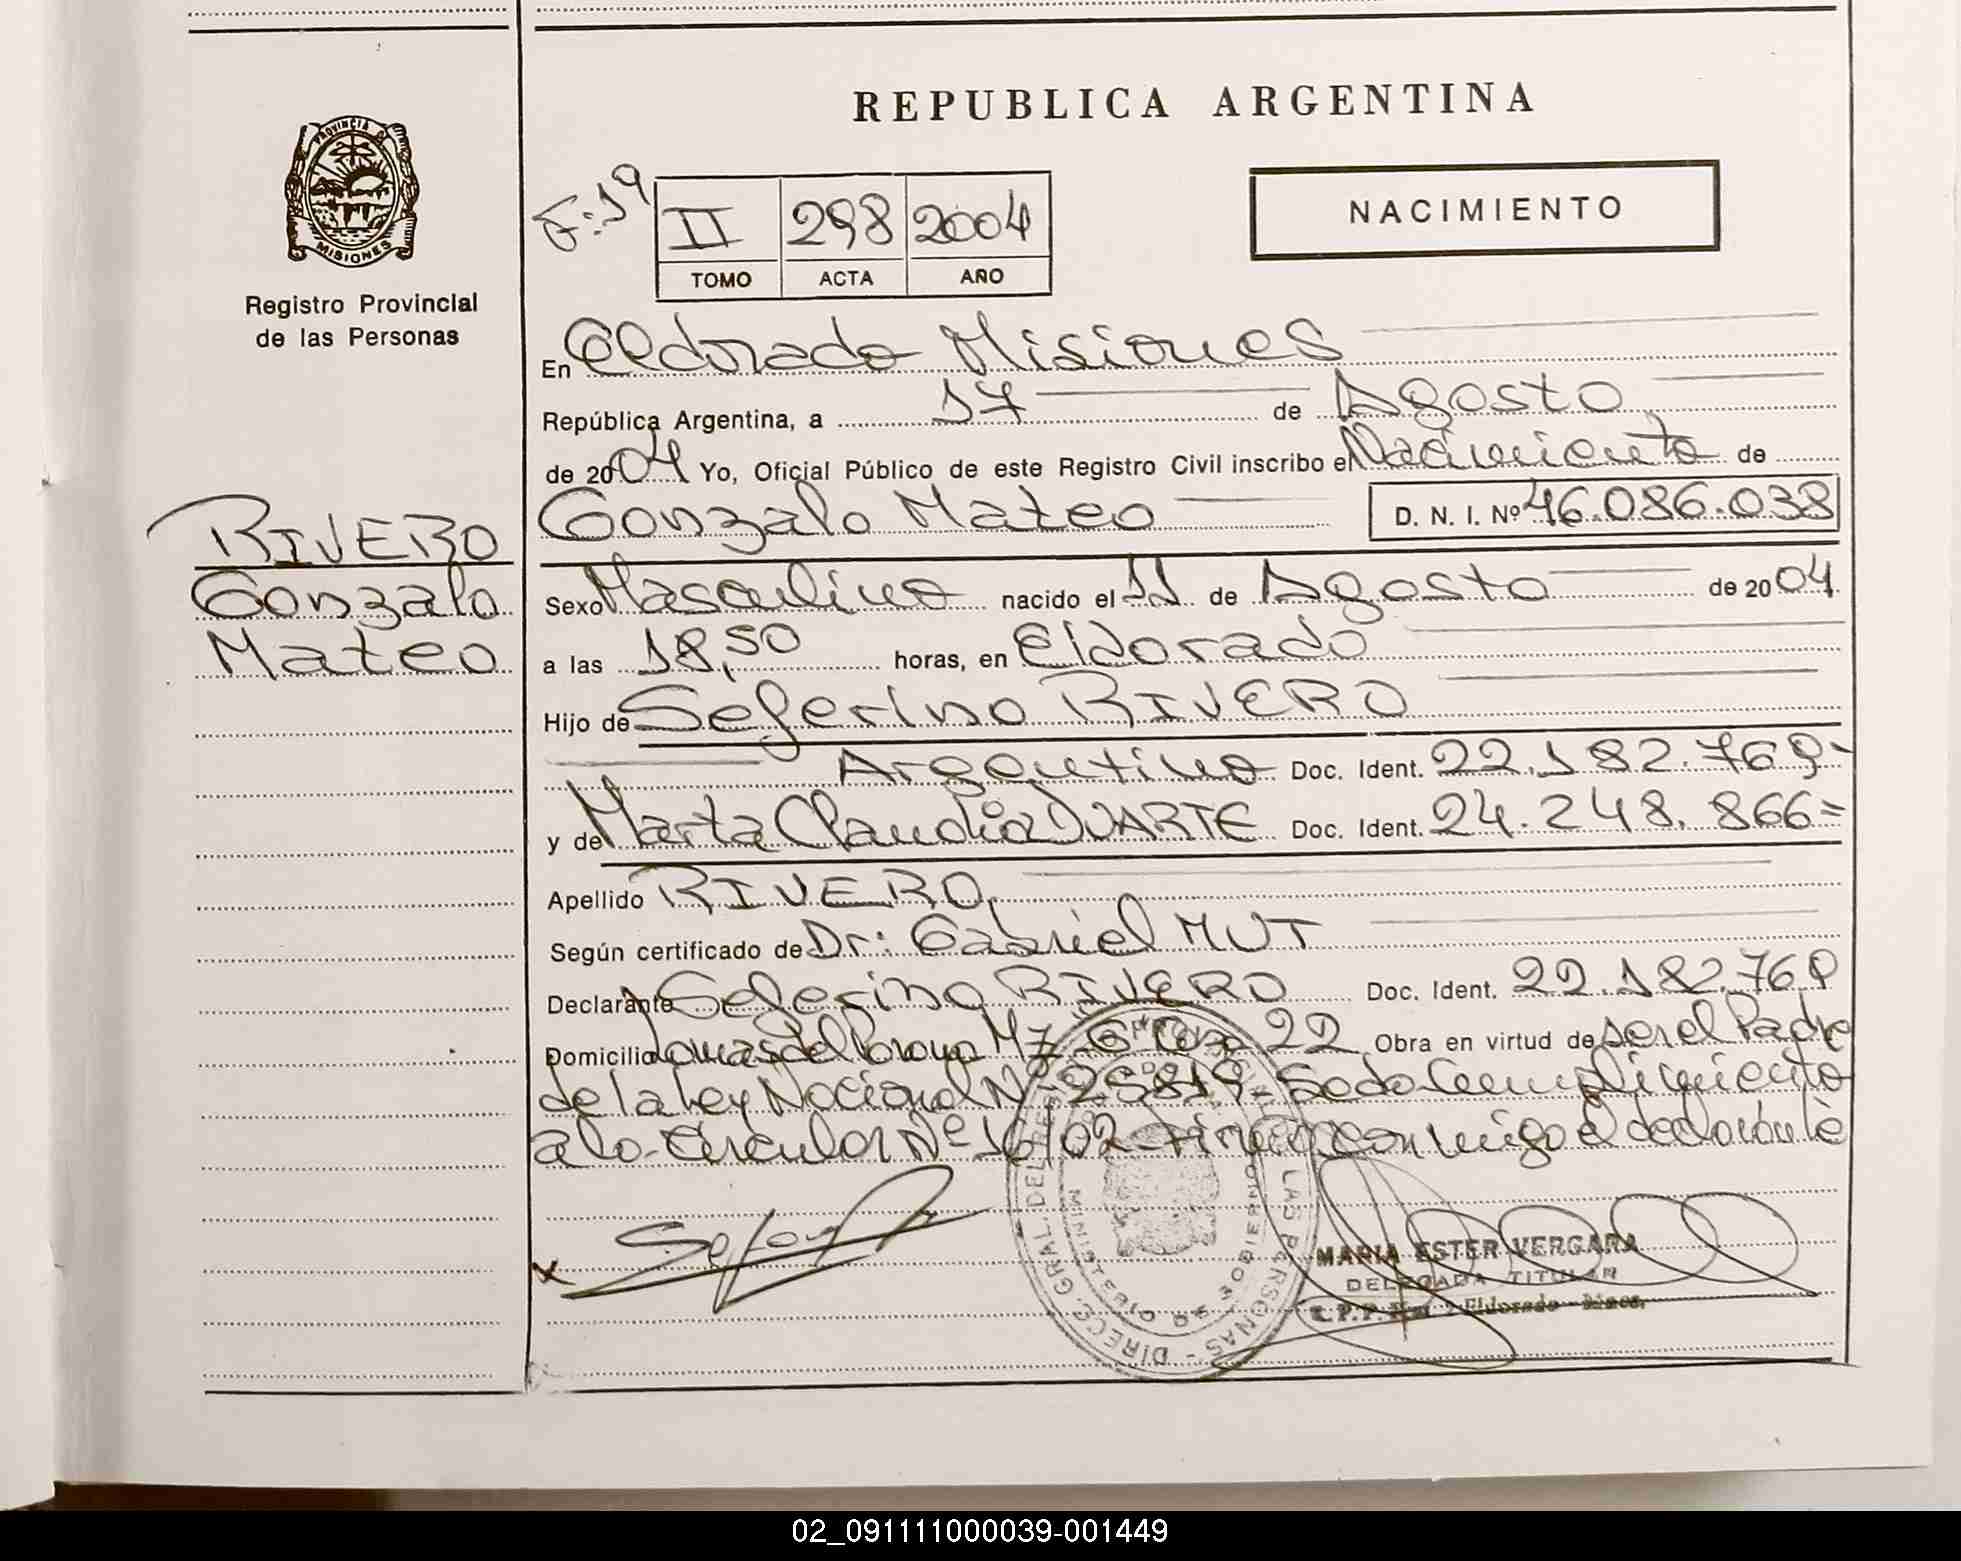 REPUBLICA ARGENTINA
PROVINCIA D
MISIONES
Registro Provincial
de las Personas
F: 19
II 298 2004
TOMO ACTA AÑO
NACIMIENTO
En Eldorado Misiones
República Argentina, a 17 de Agosto
de 2004 Yo, Oficial Público de este Registro Civil inscribo el Nacimiento de
RIVERO
Gonzalo
Mateo
Gonzalo Mateo D. N. I. Nº 46.086.038
Sexo Masculino nacido el 11 de Agosto de 2004
a las 18,50 horas, en Eldorado
Hijo de Seferino RIVERO
Argentino Doc. Ident. 22.182.769-
y de Marta Claudia DUARTE Doc. Ident. 24.248.866=
Apellido RIVERO
Según certificado de Dr: Gabriel MUT
Declarante Seferino RIVERO Doc. Ident. 22.182.769
Domicilio Lomas del Parana Mz 6 22 Obra en virtud de ser el Padre
de la Ley Nacional Nº 25819- Se da Cumplimiento
a la Circular Nº 16/02- Firma conmigo el declarante
x
MARIA ESTER VERGARA
DELEGADA TITULAR
Eldorado - Mnes.
DIREC. GRAL. DEL LAS PERSONAS
MINISTERIO DE GOBIERNO
02_091111000039-001449